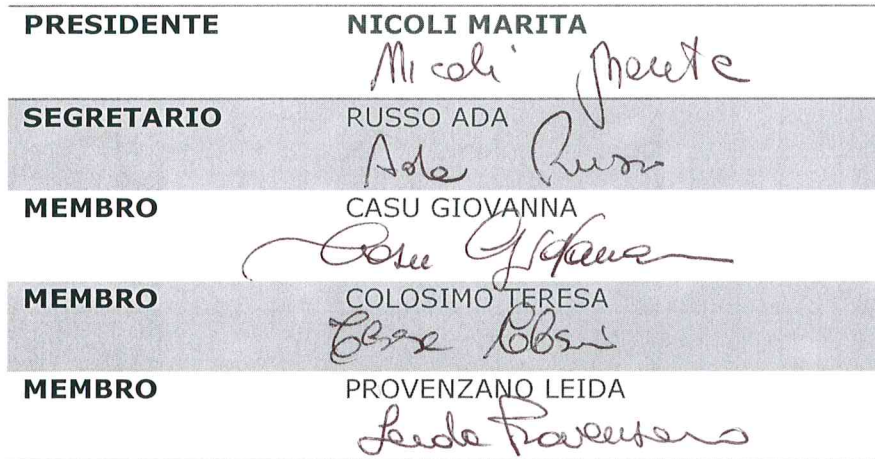 PRESIDENTE NICOLI MARITA
Nicoli Marita
SEGRETARIO RUSSO ADA
Ada Russo
MEMBRO CASU GIOVANNA
Casu Giovanna
MEMBRO COLOSIMO TERESA
Teresa Colosimo
MEMBRO PROVENZANO LEIDA
Leida Provenzano